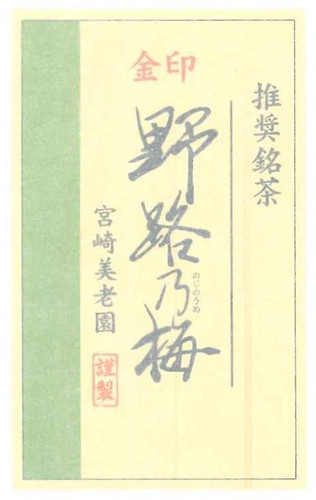 推奨銘茶
金印
野路乃梅
のじのうめ
宮崎美老園
謹製